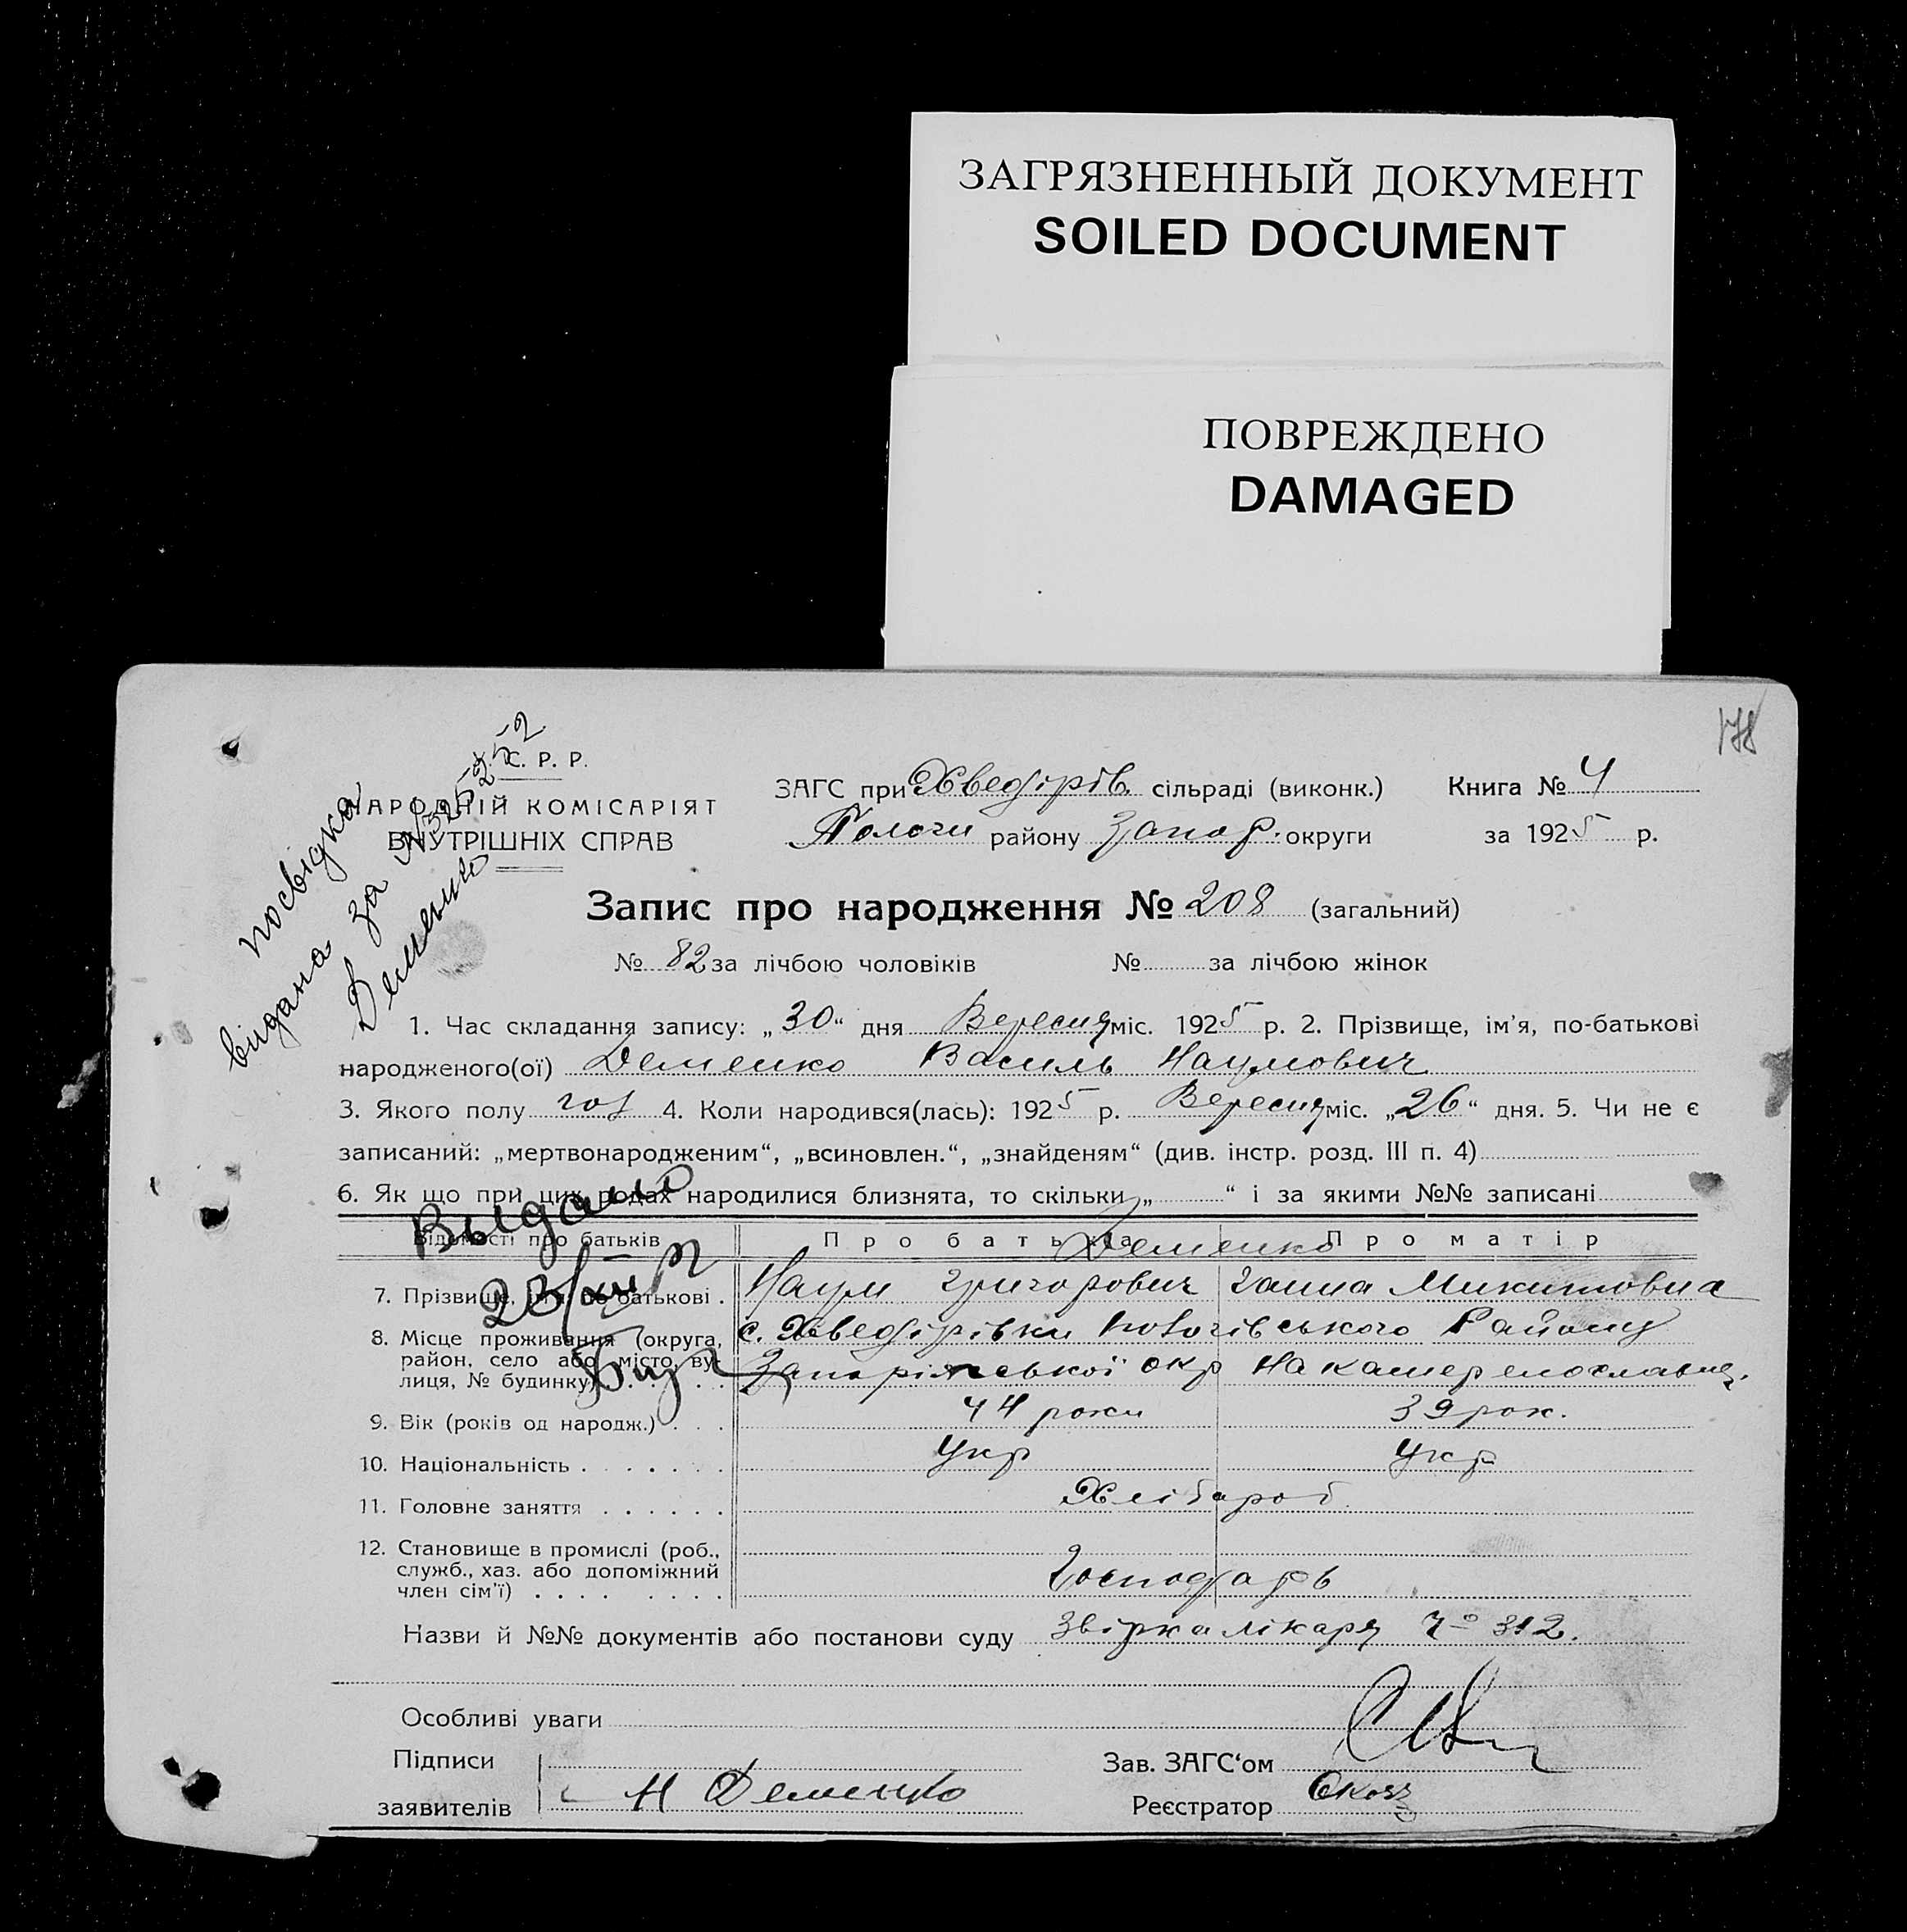 ЗАГРЯЗНЕННЫЙ ДОКУМЕНТ
SOILED DOCUMENT
ПОВРЕЖДЕНО
DAMAGED
178
С. Р. Р.
НАРОДНІЙ КОМІСАРІЯТ
ВНУТРІШНІХ СПРАВ
посвідка
видана за № 3252252
Деменко
ЗАГС при Хведірів. сільраді (виконк.) Книга № 4
Пологи району Запор. округи за 1925 р.
Запис про народження № 208 (загальний)
№ 82 за лічбою чоловіків № за лічбою жінок
1. Час складання запису: „30“ дня Вересня міс. 1925 р. 2. Прізвище, ім’я, по-батькові
народженого(ої) Деменко Василь Наумович
3. Якого полу чол 4. Коли народився(лась): 1925 р. Вересня міс. „26“ дня. 5. Чи не є
записаний: „мертвонародженим“, „всиновлен.“, „знайденям“ (див. інстр. розд. III п. 4)
6. Як що при цих родах народилися близнята, то скільки „ “ і за якими №№ записані
Выдано
Відомості про батьків Про батька Про матір
Деменко
7. Прізвище, ім’я, по батькові . Наум Григорович Ганна Микитовна
8. Місце проживання (округа, район, село або місто, вулиця, № будинку) с. Хведірівки Пологівського Району
Запоріжської окр на Катеринославщ.
9. Вік (років од народж.) . . . 44 роки 39 рок.
10. Національність . . . . . . . Укр Укр
11. Головне заняття . . . . . . Хлібороб
12. Становище в промислі (роб.,
служб., хаз. або допоміжний
член сім’ї) . . . . . . . . Господарь
Назви й №№ документів або постанови суду Звірка лікаря Ч° 312.
Особливі уваги
Підписи
Зав. ЗАГС‘ом
заявителів Н Деменко Реєстратор